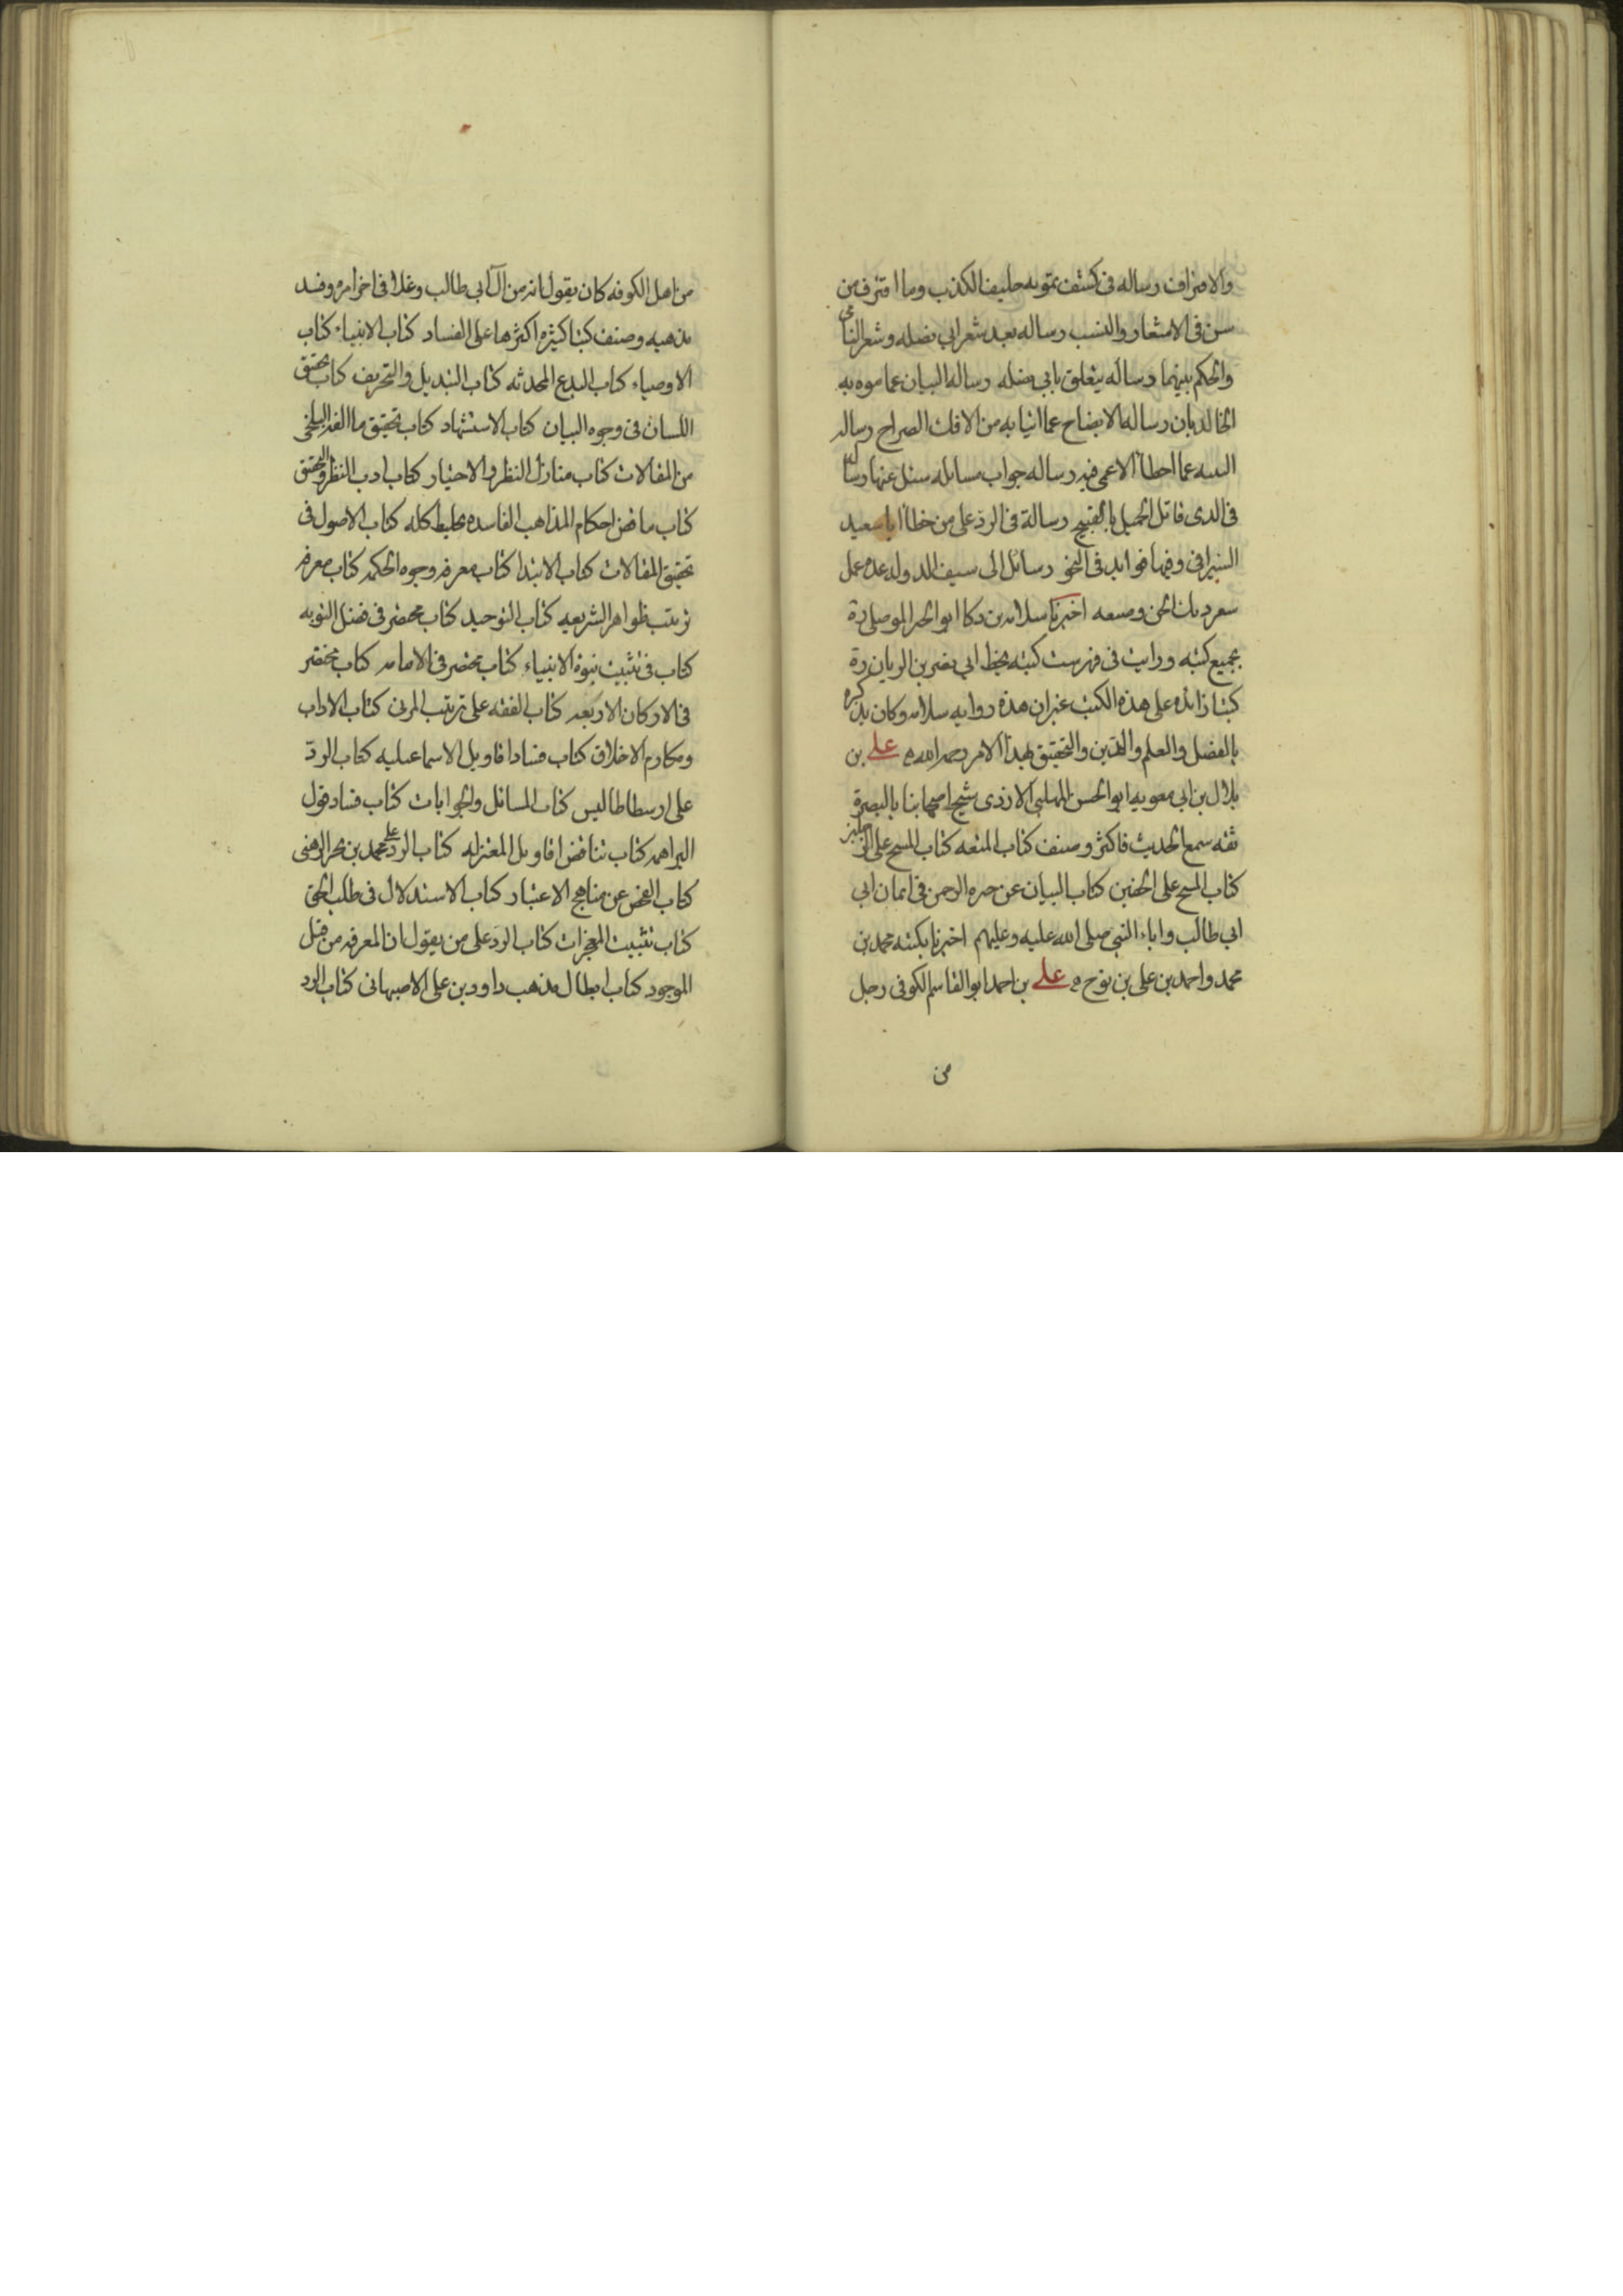 والافتراف رساله فى كشف تمويه حليف الكذب وما افترف من
سن فى الاشعار والنسب رساله بعد شعر ابى نضله وشعر النامى
والحكم بينهما رساله يتعلق بابى نضله رساله البيان عما موه به
الخالديان رساله الايضاح عما اتيا به من الافك الصراح رساله
عما اخطأ الاعمى فيه رساله جواب مسائله سئل عنها رسا
فى الذى قاتل الجميل بالقبيح رسالة فى الرد على من خطأ ابا سعيد
السيرافى وفيها فوايد فى النحو رسائل الى سيف الدوله عده عمل
اخبرنا سلامه بن دكا ابو الخير الموصلى ره
بجميع كتبه ورايت فى فهرست كتبه بخط ابى نصر بن الريان ره
كتبا زائده على هذه الكتب غير ان هذه روايه سلامه وكان يذكره
بالفضل والعلم والدين والتحقيق بهذا الامر رحمه الله ه على بن
بلال بن ابى معويه ابو الحسن المهلبى الازدى شيخ اصحابنا بالبصرة
ثقه سمع الحديث فاكثر وصنف كتاب المتعه كتاب المسح على الرجلين
كتاب المسح على الخفين كتاب البيان عن خيره الرحمن فى ايمان ابى
ابى طالب واباء النبى صلى الله عليه وعليهم اخبرنا بكتبه محمد بن
محمد واحمد بن على بن نوح ه على بن احمد ابو القاسم الكوفى رجل
من
من اهل الكوفه كان يقول انه من آل ابى طالب وغلا فى اخر امره وفسد
مذهبه وصنف كتبا كثيره اكثرها على الفساد كتاب الانبياء كتاب
الاوصياء كتاب البدع المحدثه كتاب التبديل والتحريف كتاب تحقيق
اللسان فى وجوه البيان كتاب الاستشهاد كتاب تحقيق ما الفه البلخى
من المقالات كتاب منازل النظر والاختيار كتاب ادب النظر والتحقيق
كتاب تناقض احكام المذاهب الفاسده تخليط كله كتاب الاصول فى
تحقيق المقالات كتاب الابتدا كتاب معرفه وجوه الحكمه كتاب معرفه
ترتيب ظواهر الشريعه كتاب التوحيد كتاب مختصر فى فضل التوبه
كتاب فى تثبيت نبوة الانبياء كتاب مختصر فى الامامه كتاب مختصر
فى الاركان الاربعه كتاب الفقه على ترتيب المزنى كتاب الاداب
ومكارم الاخلاق كتاب فساد اقاويل الاسماعيليه كتاب الرد
على ارسطاطاليس كتاب المسائل والجوابات كتاب فساد قول
البراهمه كتاب تناقض اقاويل المعتزله كتاب الرد على محمد بن بحر الرهنى
كتاب الفحص عن مناهج الاعتبار كتاب الاستدلال فى طلب الحق
كتاب تثبيت المعجزات كتاب الرد على من يقول ان المعرفه من قبل
الموجود كتاب ابطال مذهب داود بن على الاصبهانى كتاب الرد